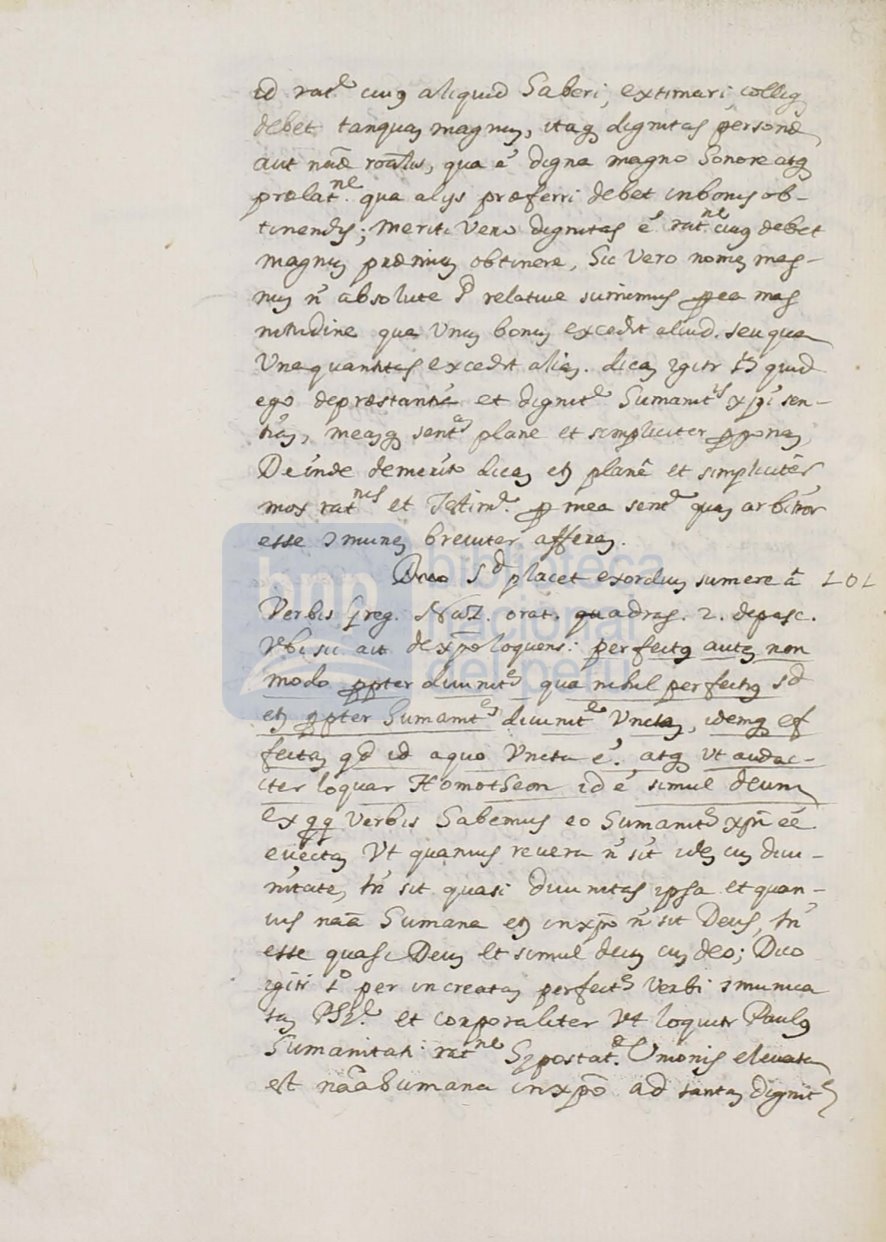 id rat.e cuiꝯ aliquid Saberi, extimari, collig
debet tanquaȝ magnuȝ, itaqȝ dignitas personæ
aut naæ roalis, qua ē digna magno Sonore atqȝ
prælat.ne qua alijs præferri debet in bonis ob-
tinendis; meriti Vero dignitas ē rat.ne cuiꝯ debet
magnuȝ præmiuȝ obtinere, Sic Vero nomeȝ mag-
nuȝ n̄ absolute sd relatiue sumimus ꝓ ea mag
nitudine qua Vnuȝ bonuȝ excedit aliud. seu qua
Vna quantitas excedit aliaȝ. dicaȝ igitr quid
ego de præstantia et dignit.e Sumanit.is xp̄i sen-
tiaȝ, meaȝqȝ sent.a plane et simpliciter ꝓponaȝ,
Deinde de merito dicaȝ etȝ planē et simplicitèr
mox rat.nes et ꝓ mea sent.a quaȝ arbitror
esse ↄmuneȝ breuiter afferaȝ.
Dico sd placet exordiuȝ sumere â 101
Verbis Greg. Naz. orat. quadrag. 2. de pasc.
vbi sic ait de xp̄o loquens: perfectꝯ auteȝ non
modo ꝓpter diuinit.e qua nihil perfectiꝯ sd
etȝ ꝓpter Sumanit.e diuinit.e Vnitaȝ, idemqȝ ef
fectaȝ qd id a quo Vncta ē, atqȝ Vt audac-
iter loquar Homotseon id ē simul deum
ex qq Verbis Sabemus eo Sumanit.e xp̄i eē
euectaȝ Vt quamuis reuera n̄ sit ideȝ cuȝ diui-
nitate, tn̄ sit quasi diuinitas ipsa et quan-
uis naa Sumana etȝ in xp̄o n̄ sit Deus, tn̄
esse quasi Deuȝ et simul deuȝ cuȝ deo; Dico
igitr 1o per increataȝ perfect.e Verbi ↄmunica
taȝ et corporaliter Vt loquitr Paulꝯ
Sumanitati rat.ne Sypostat.æ Vnionis eleuata
est naa Sumana in xp̄o ad tantaȝ dignit.e